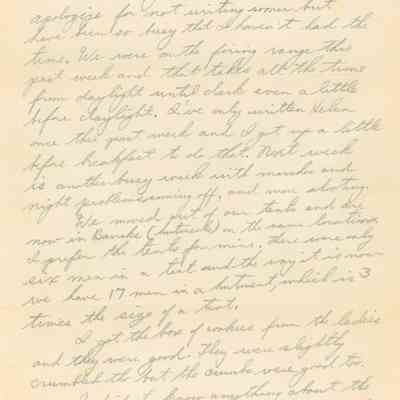 apologize for not writing sooner but
have been so busy that I haven't had the
time. We were on the firing range this
past week and that takes all the time
from daylight until dark even a little
before daylight. I've only written Helen
once this past week and I got up a little
before breakfast to do that. Next week
is another busy week with marches and
night problems coming off, and more shooting.
We moved out of our tents and are
now in Barracks (hutments) on the same location.
I prefer the tents for mine. There were only
six men in a tent and the way it is now
we have 17 men in a hutment, which is 3
times the size of a tent.
I got the box of cookies from the ladies
and they were good. They were slightly
crumbled tho but the crumbs were good too.
I didn't know anything about the